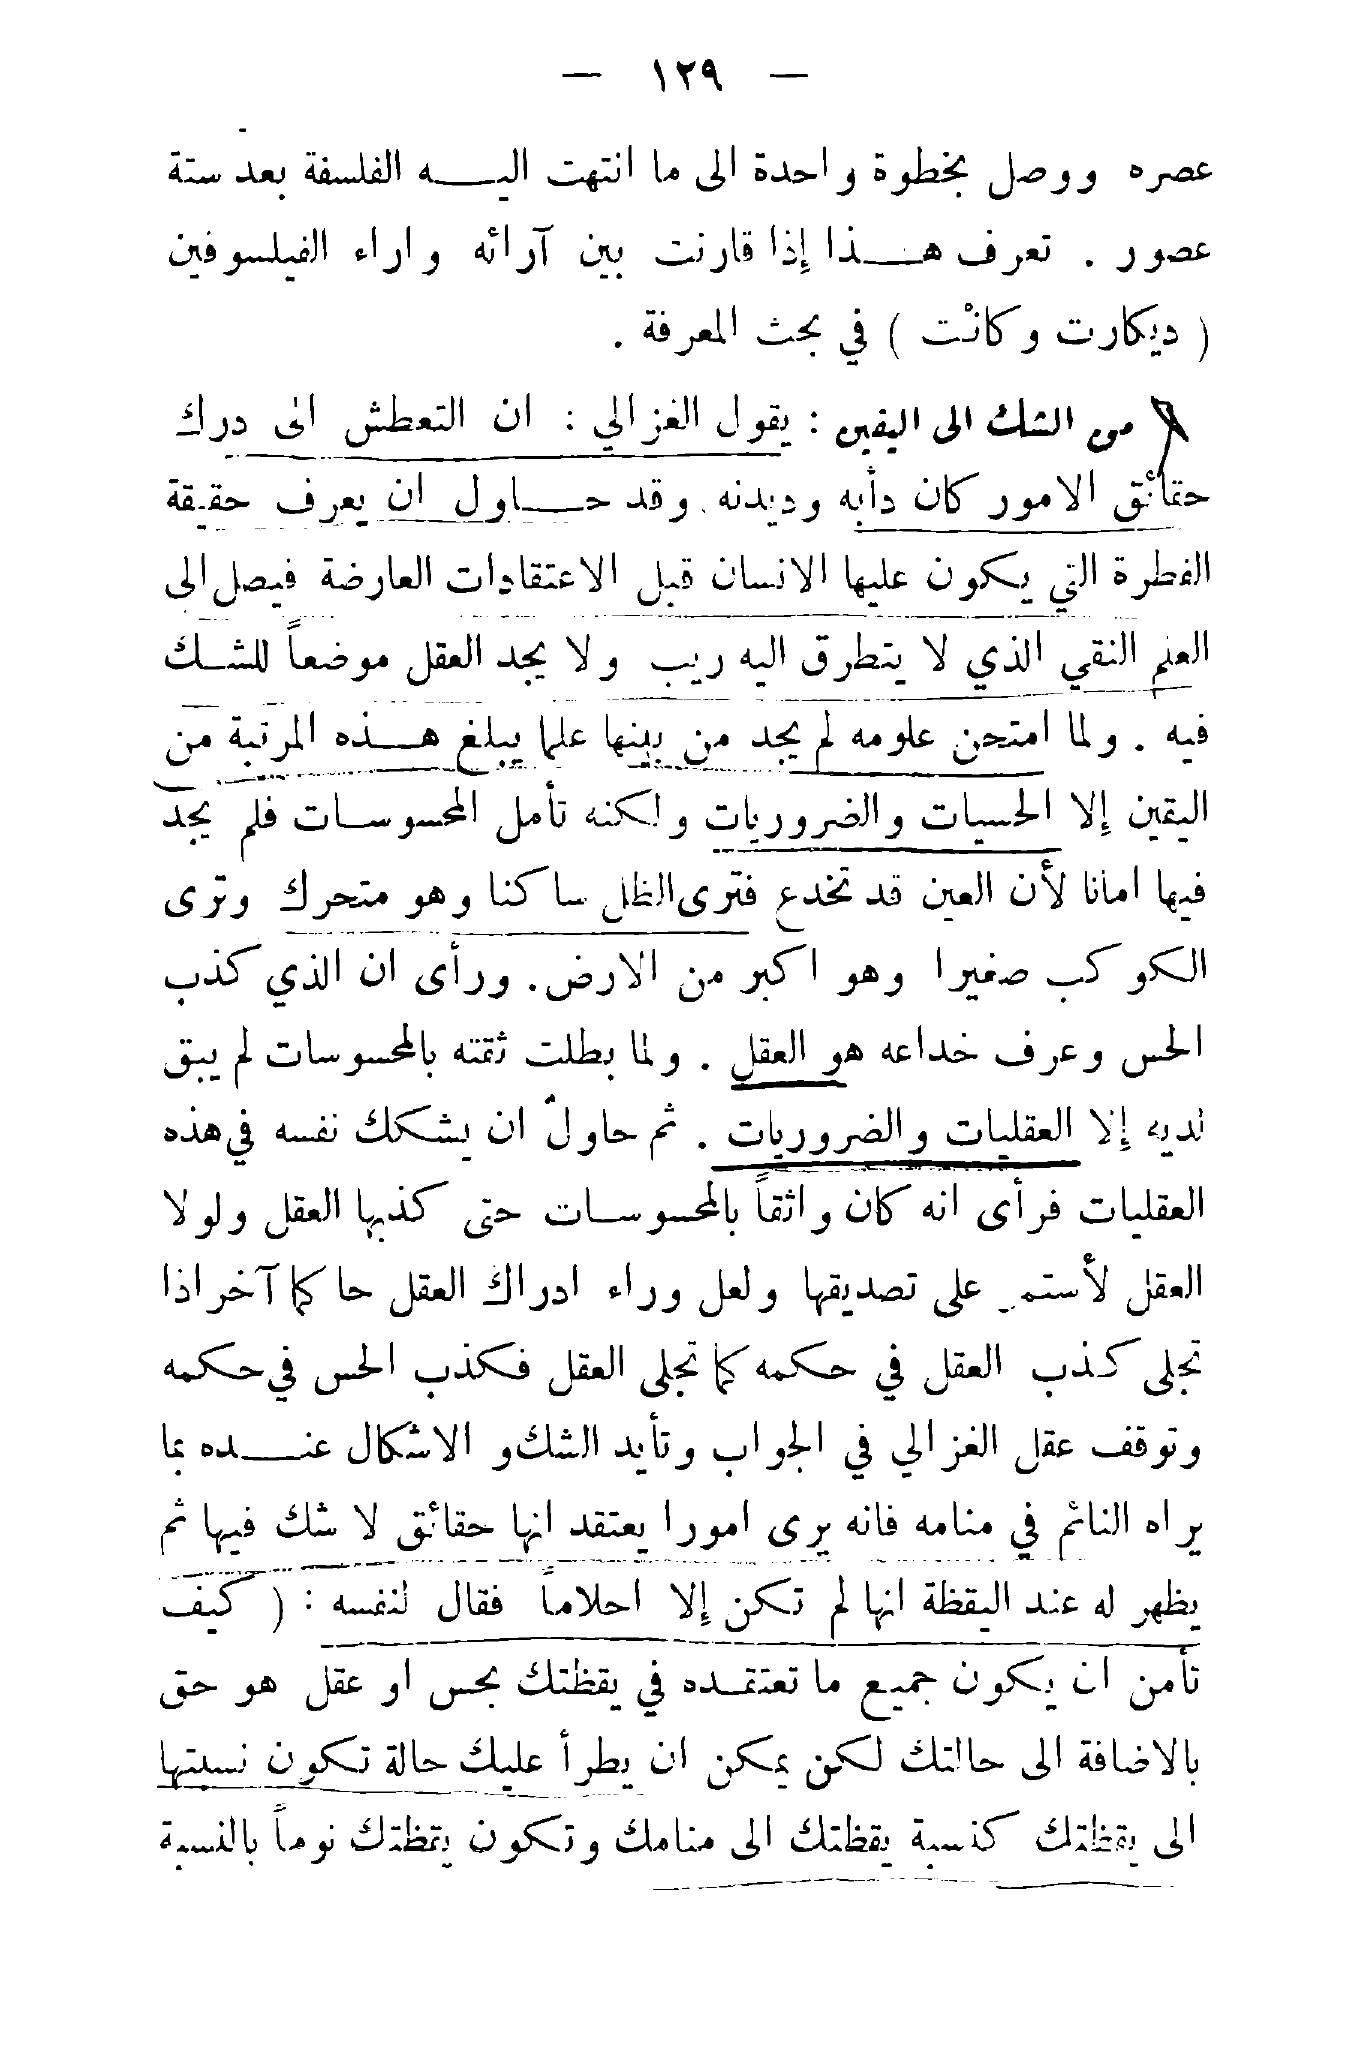 — ١٢٩ —
عصره ووصل بخطوة واحدة الى ما انتهت اليـــه الفلسفة بعد ستة
عصور . تعرف هـــذا إذا قارنت بين آرائه واراء الفيلسوفين
( ديكارت وكانْت ) في بحث المعرفة .
من الشك الى اليقين : يقول الغزالي : ان التعطش الى درك
حقائق الامور كان دأبه وديدنه . وقد حـــاول ان يعرف حقيقة
الفطرة التي يكون عليها الانسان قبل الاعتقادات العارضة فيصل الى
العلم النقي الذي لا يتطرق اليه ريب ولا يجد العقل موضعاً للشـك
فيه . ولما امتحن علومه لم يجد من بينها علما يبلغ هـــذه المرتبة من
اليقين إلا الحسيات والضروريات ولكنه تأمل المحسوسـات فلم يجد
فيها امانا لأن العين قد تخدع فترى الظل ساكنا وهو متحرك وترى
الكوكب صغيرا وهو اكبر من الارض . ورأى ان الذي كذب
الحس وعرف خداعه هو العقل . ولما بطلت ثقته بالمحسوسات لم يبق
لديه إلا العقليات والضروريات . ثم حاول ان يشكك نفسه في هذه
العقليات فرأى انه كان واثقاً بالمحسوسـات حتى كذبها العقل ولولا
العقل لأستمر على تصديقها ولعل وراء ادراك العقل حاكما آخر اذا
تجلى كـذب العقل في حكمه كما تجلى العقل فكذب الحس في حكمه
وتوقف عقل الغزالي في الجواب وتأيد الشك والاشكال عنـــده بما
يراه النائم في منامه فانه يرى امورا يعتقد انها حقائق لا شك فيها ثم
يظهر له عند اليقظة انها لم تكن إلا احلاماً فقال لنفسه : ( كيف
تأمن ان يكون جميع ما تعتقـده في يقظتك بحس او عقل هو حق
بالاضافة الى حالتك لكن يمكن ان يطرأ عليك حالة تكون نسبتها
الى يقظتك كنسبة يقظتك الى منامك وتكون يقظتك نوماً بالنسبة